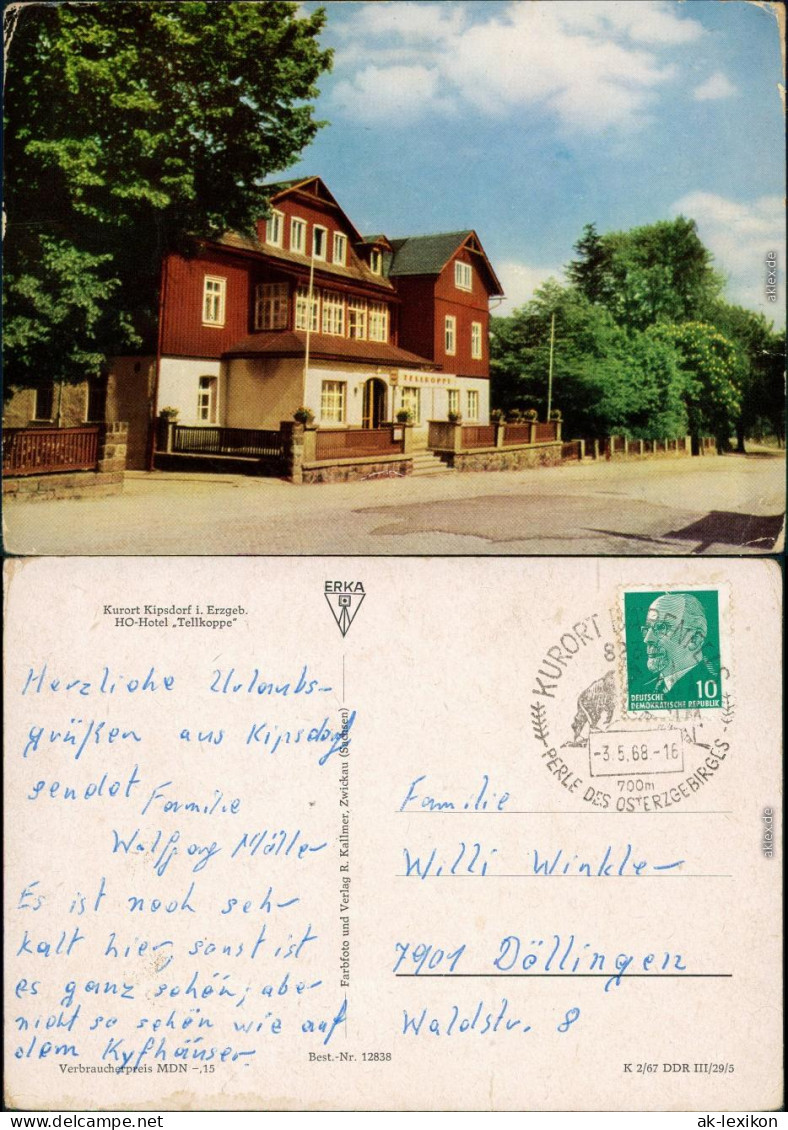 TELLKOPPE
Kurort Kipsdorf i. Erzgeb.
HO-Hotel „Tellkoppe“
ERKA
Herzliche Urlaubs-
grüßen aus Kipsdorf
sendet Familie
Wolfgang Möller
Es ist noch sehr
kalt hier, sonst ist
es ganz schön, aber
nicht so schön wie auf
dem Kyfhäuser.
Verbraucherpreis MDN -,15
Farbfoto und Verlag R. Kallmer, Zwickau (Sachsen)
Best.-Nr. 12838
KURORT
-3.5.68-16
700m
PERLE DES OSTERZGEBIRGES
DEUTSCHE
DEMOKRATISCHE REPUBLIK
10
Familie
Willi Winkler
7901 Döllingen
Waldstr. 8
K 2/67 DDR III/29/5
akpool.de
ak-lexikon.de
ak-lexikon.com